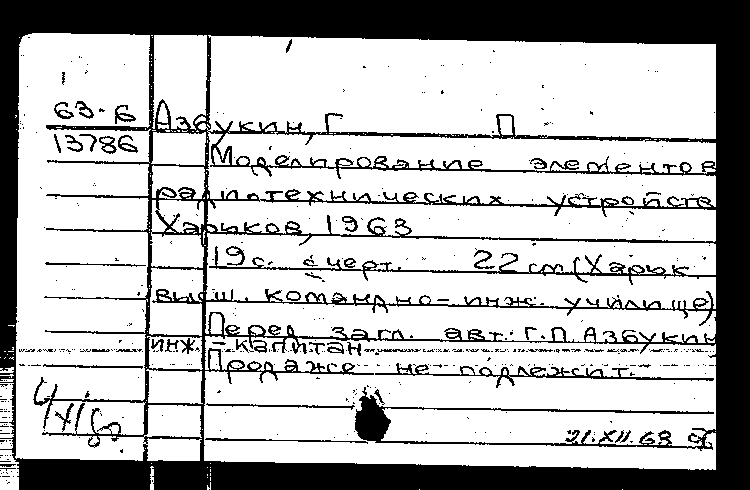 63-6
Азбукин, Г П
13786
Моделирование элементов
радиотехнических устройств
Харьков, 1963
19 с. с черт. 22 cm (Харьк.
высш. командно-инж. училище)
Перед загл. авт.: Г.П. Азбукин
инж.-капитан.
Продаже не подлежит.
21.XII.63